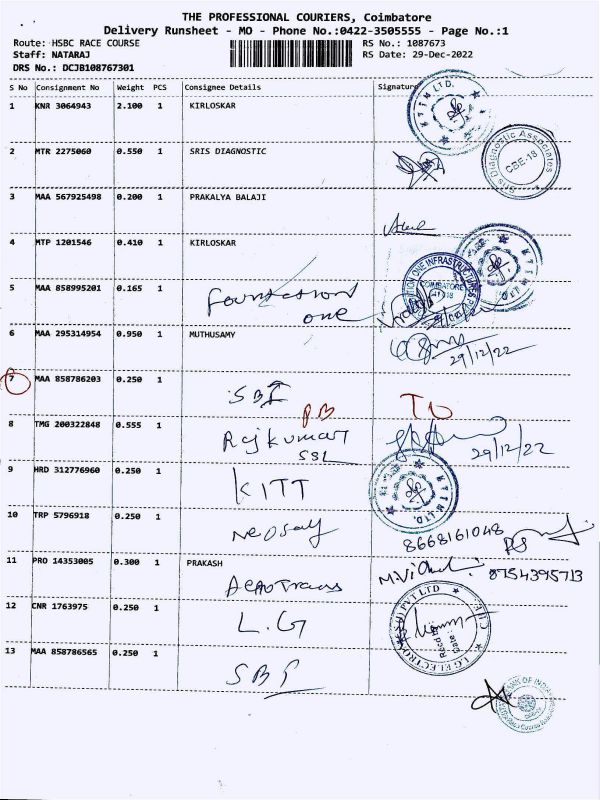 THE PROFESSIONAL COURIERS, Coimbatore
Delivery Runsheet - MO - Phone No.:0422-3505555 - Page No.:1
Route: HSBC RACE COURSE RS No.: 1087673
Staff: NATARAJ RS Date: 29-Dec-2022
DRS No.: DCJB108767301
S No Consignment No Weight PCS Consignee Details Signature
1 KNR 3064943 2.100 1 KIRLOSKAR K T T M LTD.
2 MTR 2275060 0.550 1 SRIS DIAGNOSTIC Sris Diagnostic Associates CBE-18
3 MAA 567925498 0.200 1 PRAKALYA BALAJI
4 MTP 1201546 0.410 1 KIRLOSKAR K T T M LTD
5 MAA 858995201 0.165 1 Foundation one ONE INFRASTRUCTURES COIMBATORE
6 MAA 295314954 0.950 1 MUTHUSAMY 29/12/22
7 MAA 858786203 0.250 1 SBI PB TO
8 TMG 200322848 0.555 1 Rajkumar SSL 29/12/22
9 HRD 312776960 0.250 1 KITT K T T M LTD.
10 TRP 5796918 0.250 1 8668161048
11 PRO 14353005 0.300 1 PRAKASH 8754395713
12 CNR 1763975 0.250 1 L.G LG ELECTRONICS PVT LTD CBE
13 MAA 858786565 0.250 1 SBI BANK OF INDIA